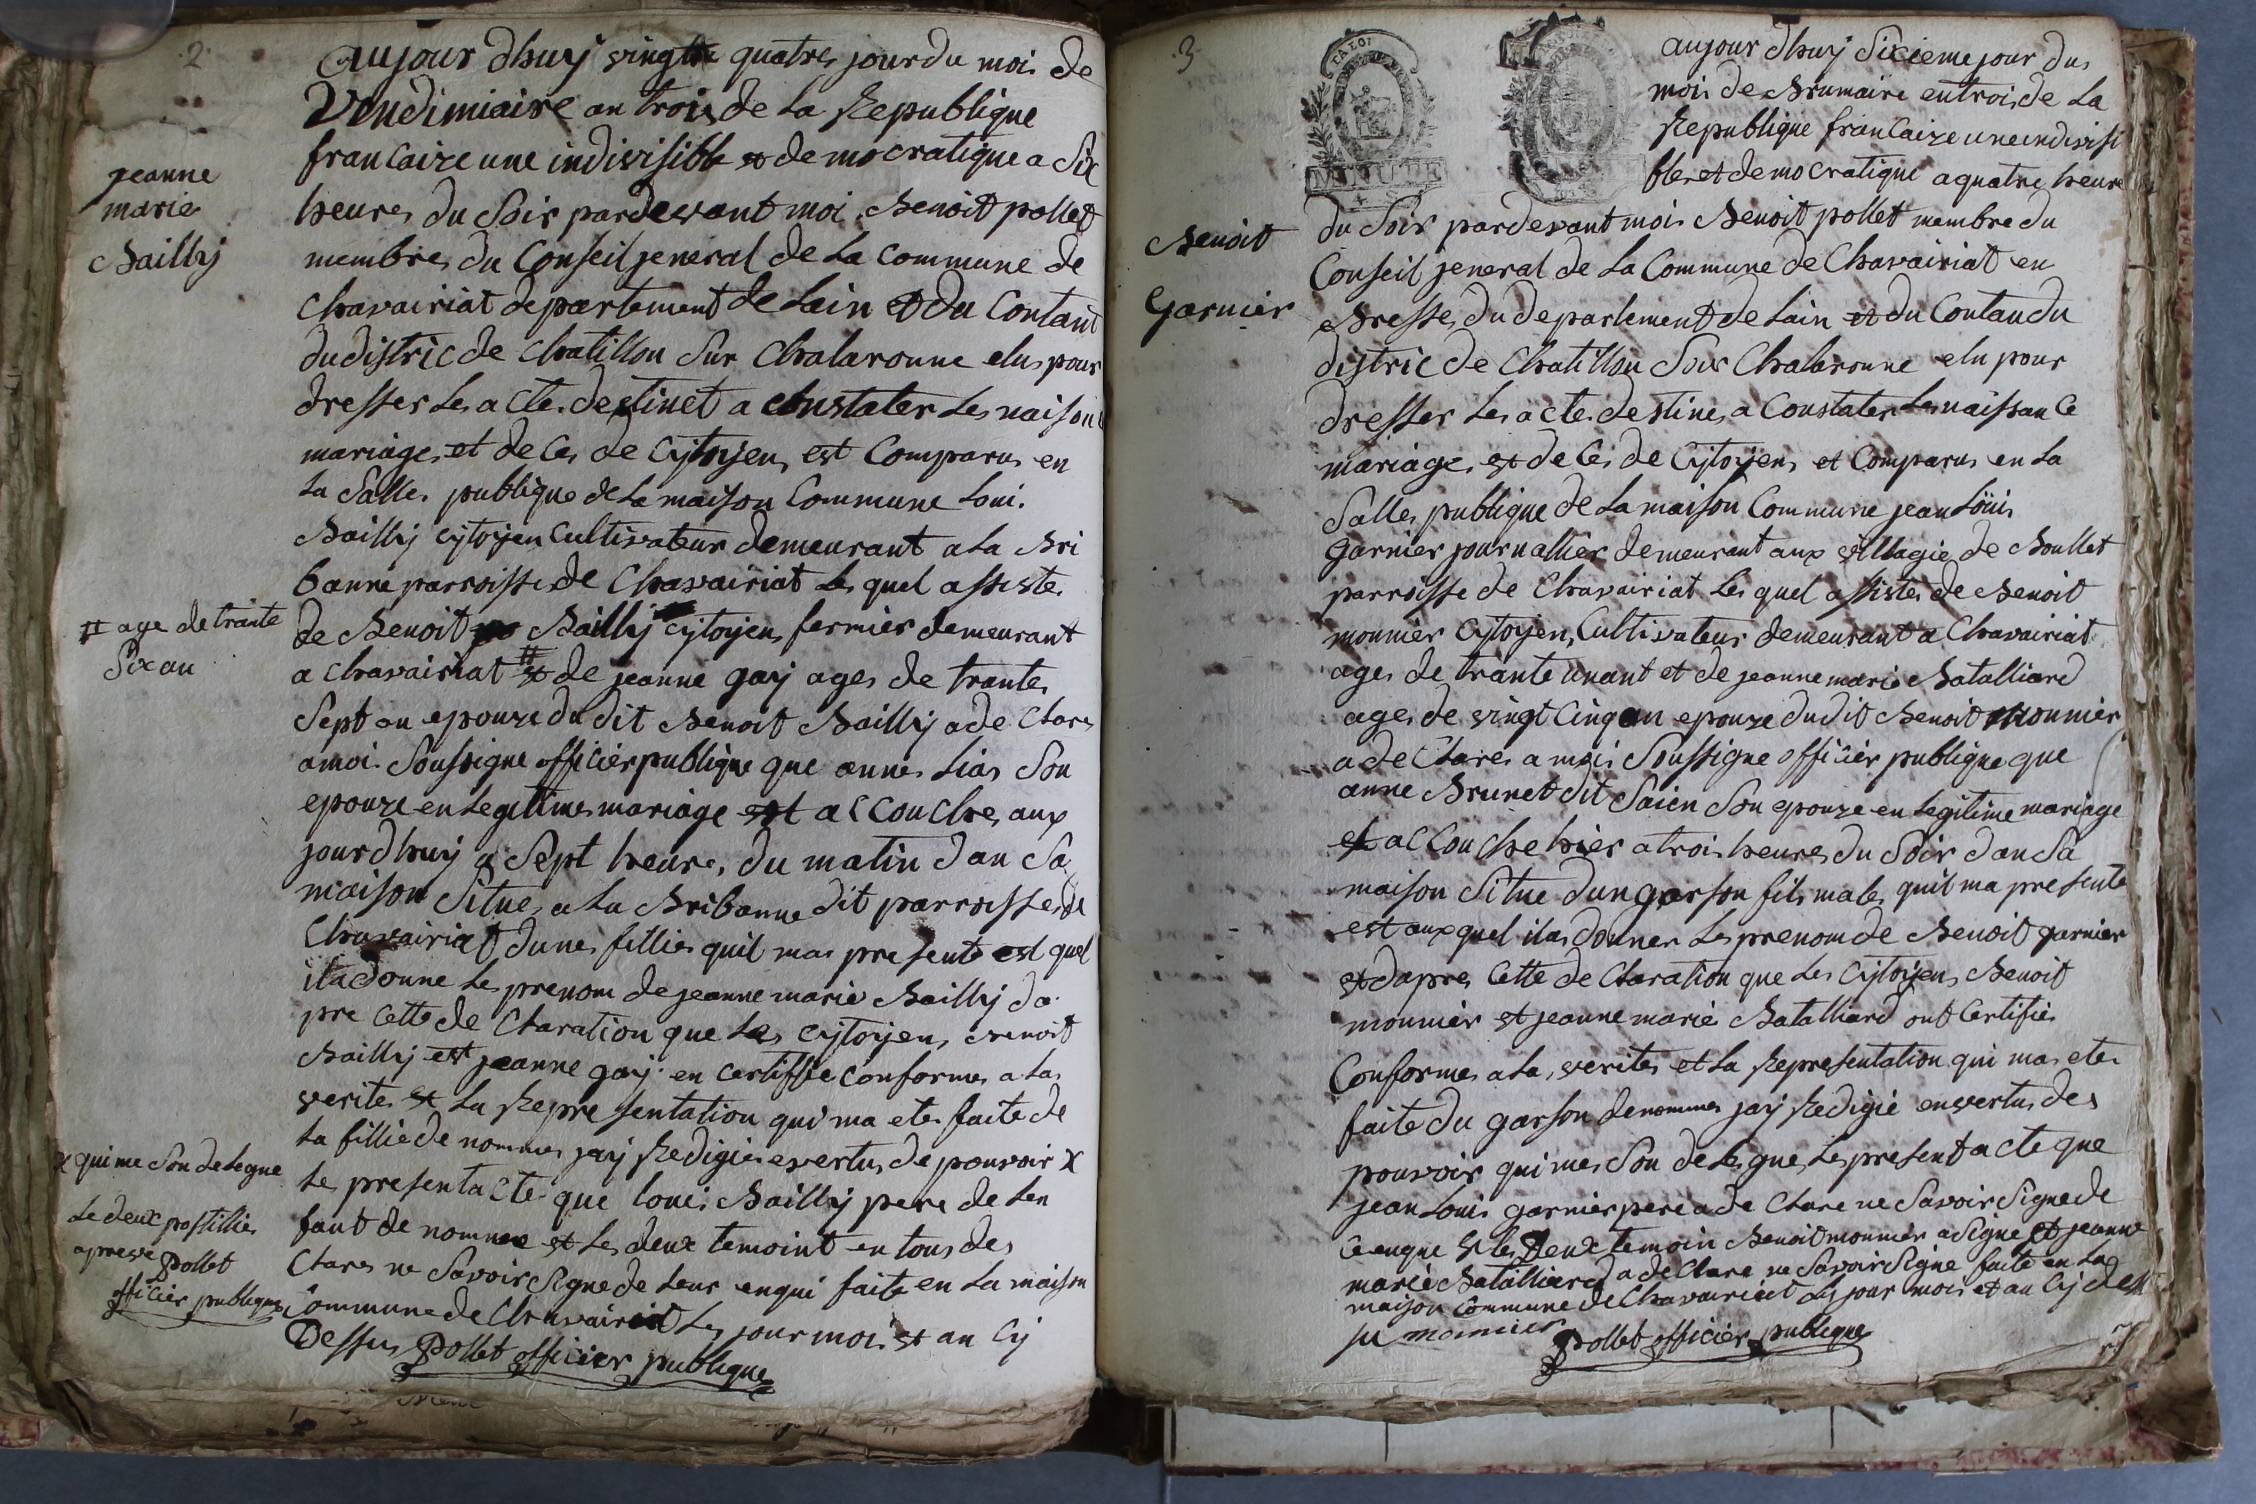 2
aujour dhuy vingtte quatres jour du moi de
Vendimiaire an trois de La Republique
francaize une indivisible et democratique a Six
heures du Soir pardevant moi Benoit pollet
membres du Conseil jeneral de La Commune de
Chavairiat departement de Lain et du Contant
du distric de Chatillon Sur Chalaronne elus pour
dresser Les acte destinet a Constater Les naison
mariages et de Ces de Cytoyens est Comparus en
La Salles publique de La maison Commune Loui
Bailly cytoyen Cultivateur demeurant a La Bri
banne parroisse de Chavairiat Les quel assiste
de Benoit Bailly cytoyen fermier demeurant
a Chavairiat # et de jeanne gay ages de trantes
Sept an epouze du dit Benoit Bailly a de Clare
a moi Soussigne officier publique que annes Lias Son
epouze en Legitimes mariage est a CCouChes aux
jourdhuy a Sept heures du matin dan Sa
maison Situe a La Bribanne dit parroisse de
Chavairiat dunes fillies quil mas presente est quel
ila donne Les prenom de jeanne marie Bailly da
pre Cette de Claration que Les Cytoyens Benoit
Bailly est jeanne gay en Certiffie Conformes a La
verites et La Representation qui ma etes faite de
La fillie de nommes jay Redigies evertus de pouvoir X
Le present acte que Loui Bailly pere de Len
fant de nommee et Les deux temoint en tous de
Clares ne Savoir Signe de Leur enqui faite en La maison
Commune de Chavairiat Les jour moi et an Cy
Dessus Pollet officier publique
jeanne
marie
Bailly
# age de trante
Six an
X qui me Son delegue
Le deux postillies
apreve Pollet
officier publique
3
LA LOI
aujour dhuy Sixieme jour dus
moi de Brumaire entrois de La
Republique francaize une indivisi
bles et democratique a quatres heures
du Soir pardevant moi Benoit pollet membre du
Conseil jeneral de La Commune de Chavairiat en
Bresses du departement de Lain et du Contandu
distric de Chatillon Sur Chalaronne elu pour
dresser Les acte destines a Constates Les naissance
mariages et de Ces de Cytoyens et Comparus en La
Salles publique de La maison Commune jean Loüis
garnier journallier demeurant aux villagie de Boullet
parroisse de Chavairiat Les quel assistes de Benoit
monnier Cytoyen Cultivateur demeurant a Chavairiat
ages de trante unant et de jeanne marie Batalliard
ages de vingt Cinq an epouze dudit Benoit monnier
a de Clares a moi Soussigne officier publique que
anne Brunet dit Saien Son epouze en Legitime mariage
est a CCouChe hier a trois heures du Soir dan Sa
maison Situe dun garson fils males quil ma presente
est aux quel ilas donner Les prenom de Benoit garnier
et dapres Cette de Claration que Les Cytoyens Benoit
monnier et jeanne marie Batalliard ont Certifies
Conformes a La verites et La Representation qui mas etes
faite du garson denommes jay Redigie en vertus des
pouvoir qui mes Son delegue Les present acte que
jean Louis garnier pere a de Clare ne Savoir Signe de
Ce enque et Les Deux temoin Benoit monnier a Signe et jeanne
marie Batalliard a de Clare ne Savoir Signe faite en La
maison Commune de Chavairiat Les jour moi et an Cy dess
su monnier Pollet officier publique
Benoit
Garnier